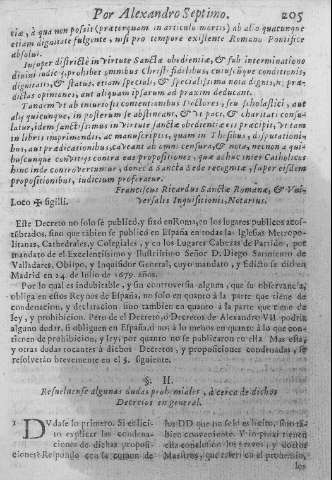 Por Alexandro Septimo. 205
ciæ, à qua non possit (præterquam in articulo mortis) ab alio quacunque
etiam dignitate fulgente, nisi pro tempore existente Romano Pontifice
absolvi.
Insuper districtè in virtute Sanctæ obedientiæ, & sub interminatione
divini iudicij, prohibet omnibus Christi fidelibus, cuiuscunque conditionis,
dignitatis, & status, etiam speciali, & specialissima nota dignis, ne præ-
dictas opiniones, aut aliquam ipsarum ad praxim deducant.
Tandem vt ab iniuriosis contentionibus Doctores, seu scholastici, aut
alij quicunque, in posterum se abstineant, & vt paci, & charitati consu-
latur, idem sanctissimus in virtute sanctæ obedientiæ eis præcipit, vt tam
in libris imprimendis, ac manuscriptis, quam in Thesibus, disputationi-
bus, aut prædicationibus, caveant ab omni censura, & nota, necnon a qui-
buscunque convitijs contra eas propositiones, quæ adhuc inter Catholicos
hinc inde controvertuntur, donec à Sancta Sede recognitæ, super eisdem
propositionibus, iudicium proferatur.
Franciscus Ricardus Sanctæ Romanæ, & Vni-
Loco ✠ sigilli. versalis Inquisitionis, Notarius.
Este Decreto no solo se publicó, y fixò en Roma, en los lugares publicos acos-
tũbrados, sino que tãbien se publicò en España en todas las Iglesias Metropo-
litanas, Cathedrales, y Colegiales, y en los Lugares Cabezas de Partido, por
mandato de el Excelentissimo y Ilustrissimo Señor D. Diego Sarmiento de
Valladares, Obispo, y Inquisidor General, cuyo mandato, y Edicto se diò en
Madrid en 24. de Iulio de 1679. años.
Por lo qual es indubitable, y sin controversia alguna, que su observancia,
obliga en estos Reynos de España, no solo en quanto à la parte que tiene de
condenacion, y declaracion sino tambien en quanto à la parte que tiene de
ley, y prohibicion. Pero de el Decreto, ò Decretos de Alexandro VII. podrìa
alguno dudar, si obliguen en España, ò no, à lo menos en quanto à lo que con-
tienen de prohibicion, y ley, por quanto no se publicaron en ella. Mas esta,
y otras dudas tocantes à dichos Decretos, y proposiciones condenadas, se
resolveràn brevemente en el §. siguiente.
§. II.
Resuelvense algunas dudas prohemiales, à cerca de dichos
Decretos en general.
1 DVdase lo primero. Si es licito
explicar las condenacio-
ciones de dichas propo-
ciones? Respondo con la comun de
los DD que no solo es licito, sino tã-
bien conveniente. Y in praxi tienen
esta conclusion los tenvs, y doctos
Maestros, que traen en el prohemio,
los